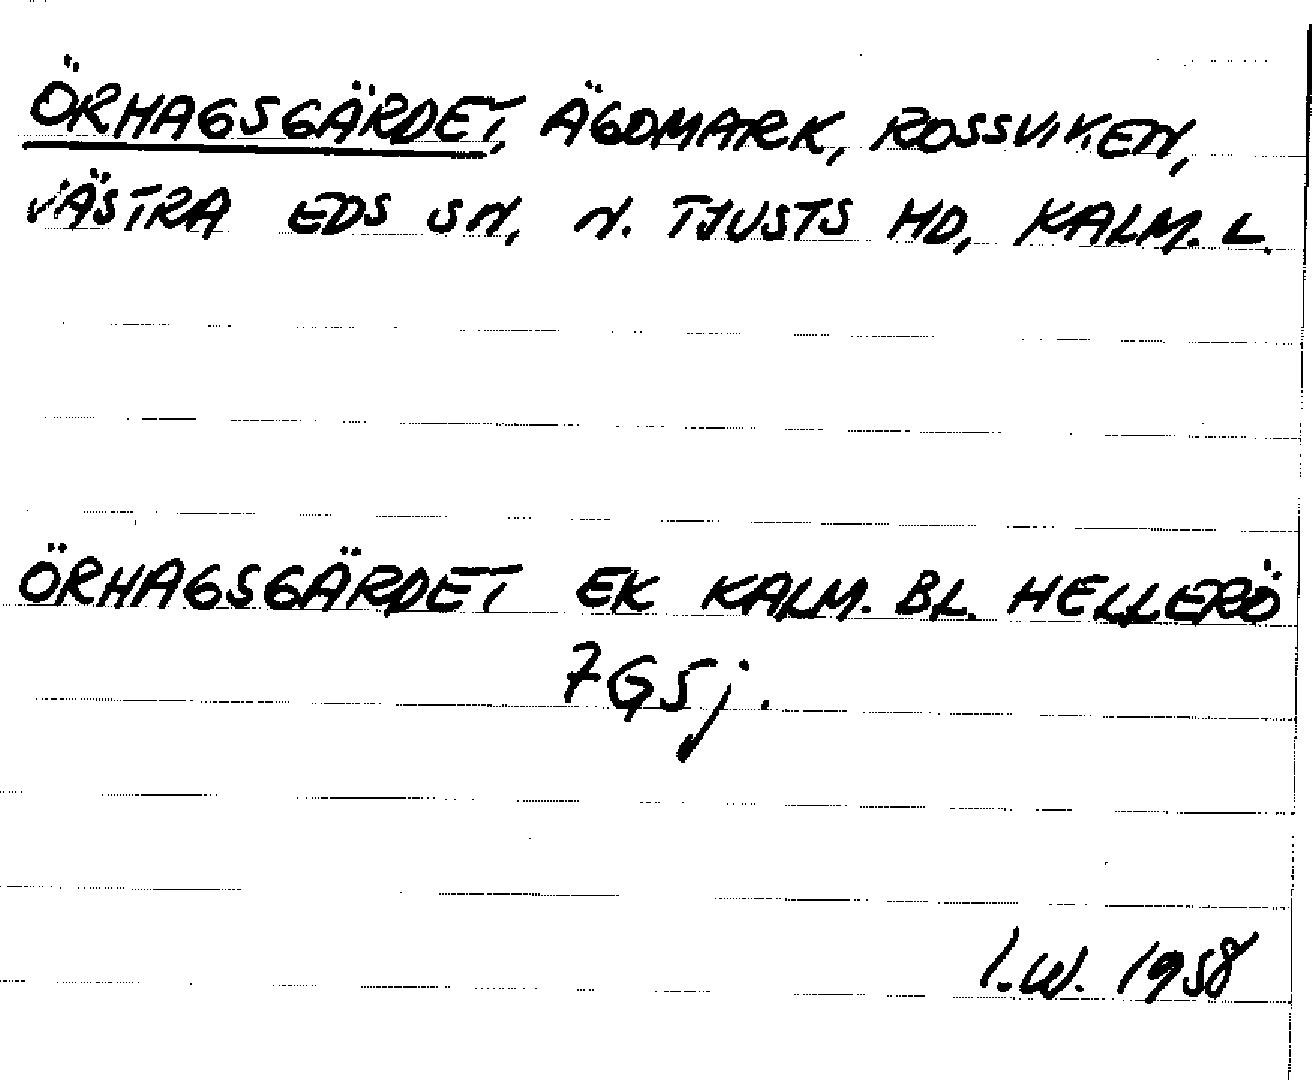 ÖRHAGSGÄRDET, ÄGOMARK, ROSSVIKEN,
VÄSTRA EDS SN, N. TJUSTS HD, KALM. L.
ÖRHAGSGÄRDET EK KALM. BL. HELLERÖ
7G5j.
I.W. 1958